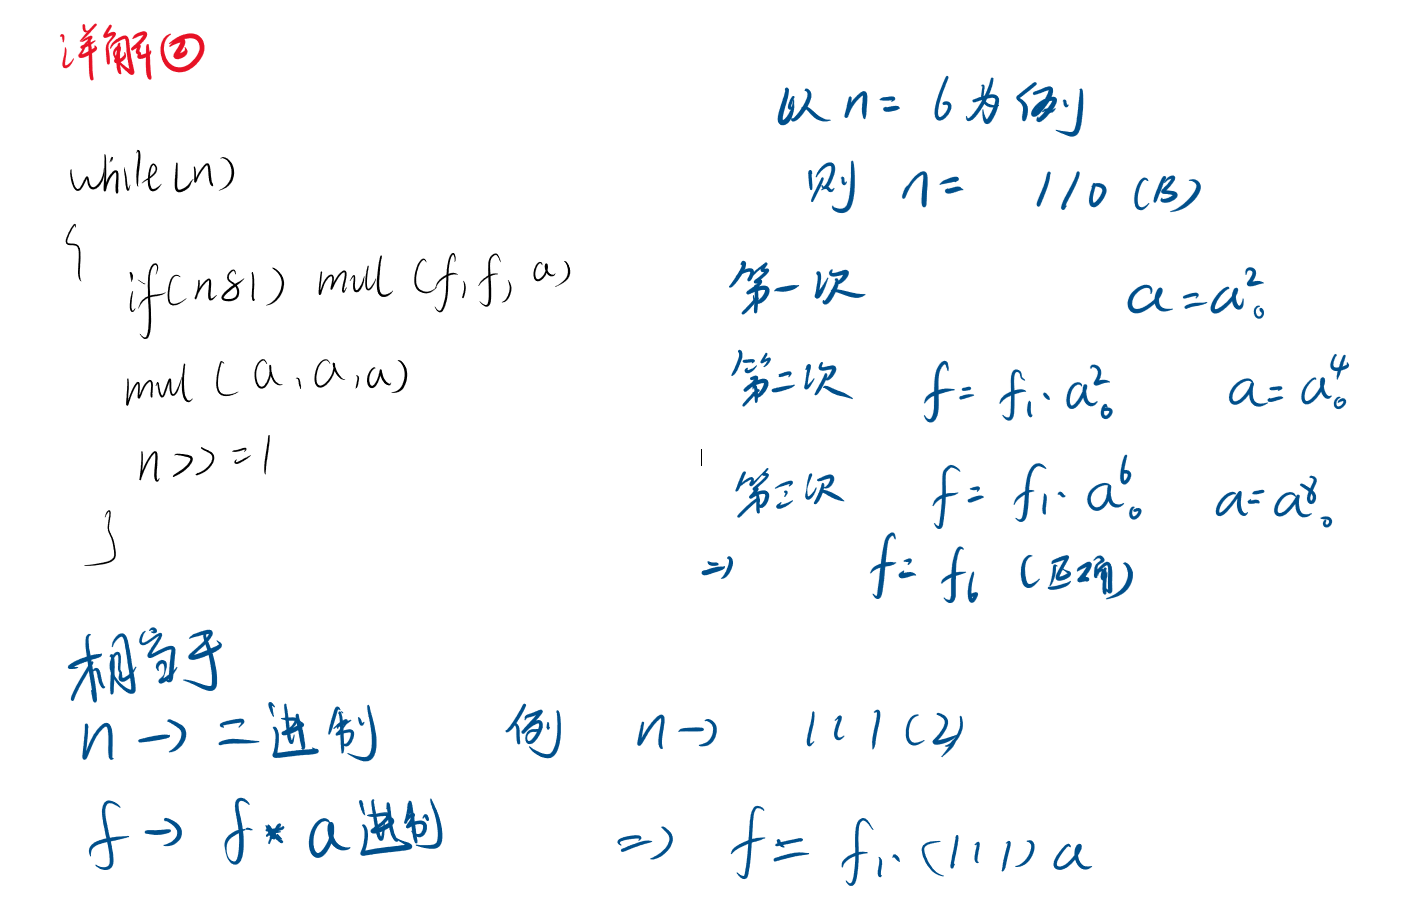 详解②
while(n)
{
if(n&1) mul(f,f,a)
mul(a,a,a)
n>>=1
}
以n=6为例
则 n= 110(B)
第一次 a=a₀²
第二次 f=f₁·a₀² a=a₀⁴
第三次 f=f₁·a₀⁶ a=a₀⁸
=> f=f₆ (正确)
相当于
n→二进制 例 n→ 111(2)
f→f*a进制 => f=f₁·(111)a